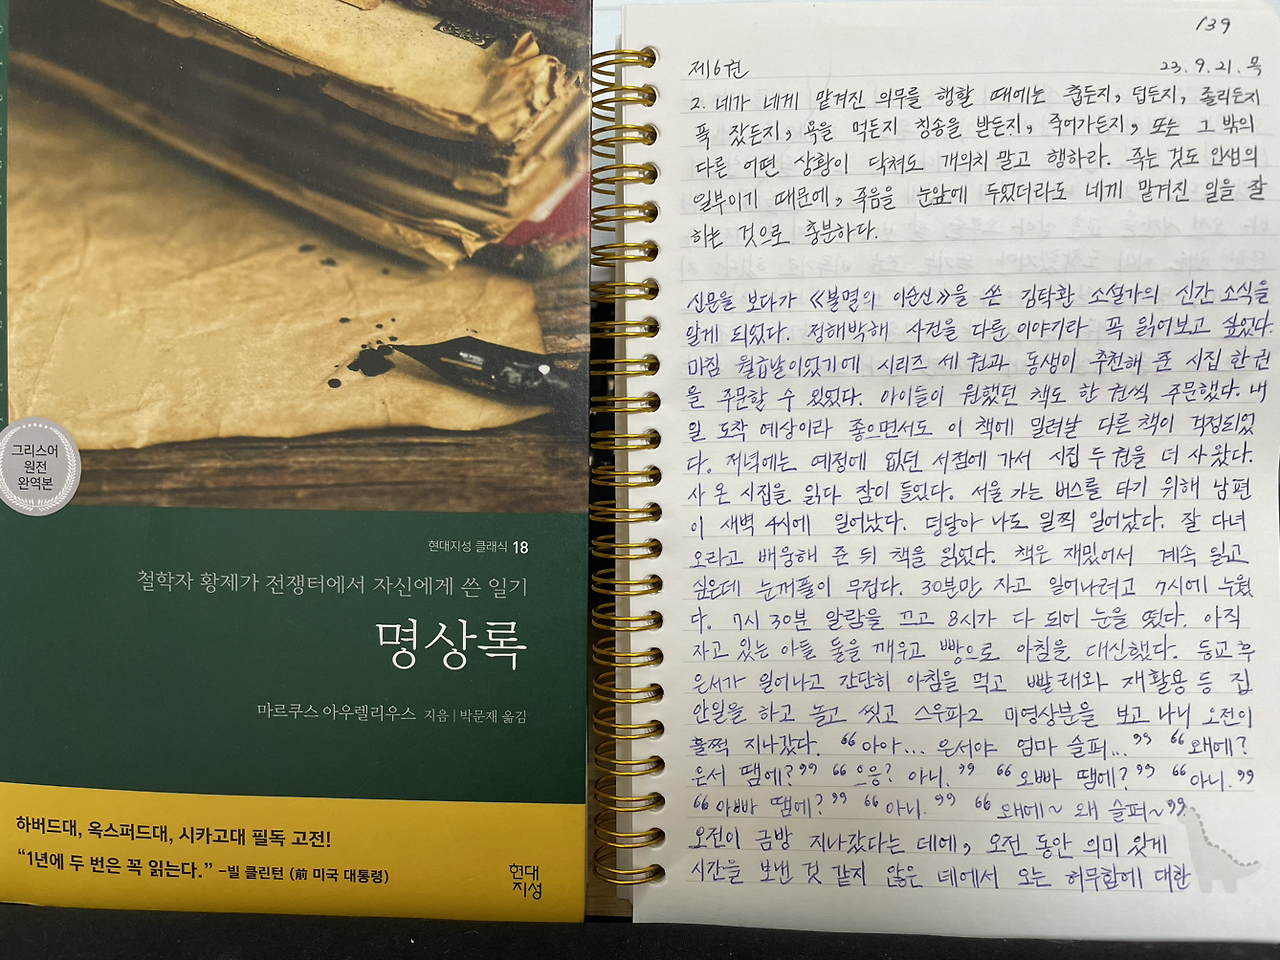 그리스어
원전
완역본
현대지성 클래식 18
철학자 황제가 전쟁터에서 자신에게 쓴 일기
명상록
마르쿠스 아우렐리우스 지음 | 박문재 옮김
하버드대, 옥스퍼드대, 시카고대 필독 고전!
“1년에 두 번은 꼭 읽는다.” –빌 클린턴 (前 미국 대통령)
현대
지성
139
제6권 23.9.21.목
2. 네가 네게 맡겨진 의무를 행할 때에는 춥든지, 덥든지, 졸리든지
푹 잤든지, 욕을 먹든지 칭송을 받든지, 죽어가든지, 또는 그 밖의
다른 어떤 상황이 닥쳐도 개의치 말고 행하라. 죽는 것도 인생의
일부이기 때문에, 죽음을 눈앞에 두었더라도 네게 맡겨진 일을 잘
하는 것으로 충분하다.
신문을 보다가 《불멸의 이순신》을 쓴 김탁환 소설가의 신간 소식을
알게 되었다. 정해박해 사건을 다룬 이야기라 꼭 읽어보고 싶었다.
마침 월급날이었기에 시리즈 세 권과 동생이 추천해 준 시집 한 권
을 주문할 수 있었다. 아이들이 원했던 책도 한 권씩 주문했다. 내
일 도착 예상이라 좋으면서도 이 책에 밀려날 다른 책이 걱정되었
다. 저녁에는 예정에 없던 서점에 가서 시집 두 권을 더 사 왔다.
사 온 시집을 읽다 잠이 들었다. 서울 가는 버스를 타기 위해 남편
이 새벽 4시에 일어났다. 덩달아 나도 일찍 일어났다. 잘 다녀
오라고 배웅해 준 뒤 책을 읽었다. 책은 재밌어서 계속 읽고
싶은데 눈꺼풀이 무겁다. 30분만 자고 일어나려고 7시에 누웠
다. 7시 30분 알람을 끄고 8시가 다 되어 눈을 떴다. 아직
자고 있는 아들 둘을 깨우고 빵으로 아침을 대신했다. 등교 후
은서가 일어나고 간단히 아침을 먹고 빨래와 재활용 등 집
안일을 하고 놀고 씻고 스우파2 미영상분을 보고 나니 오전이
훌쩍 지나갔다. “아아... 은서야 엄마 슬퍼...” “왜에?
은서 땜에?” “으응? 아니.” “오빠 땜에?” “아니.”
“아빠 땜에?” “아니.” “왜에~ 왜 슬퍼~”
오전이 금방 지나갔다는 데에, 오전 동안 의미 있게
시간을 보낸 것 같지 않은 데에서 오는 허무함에 대한